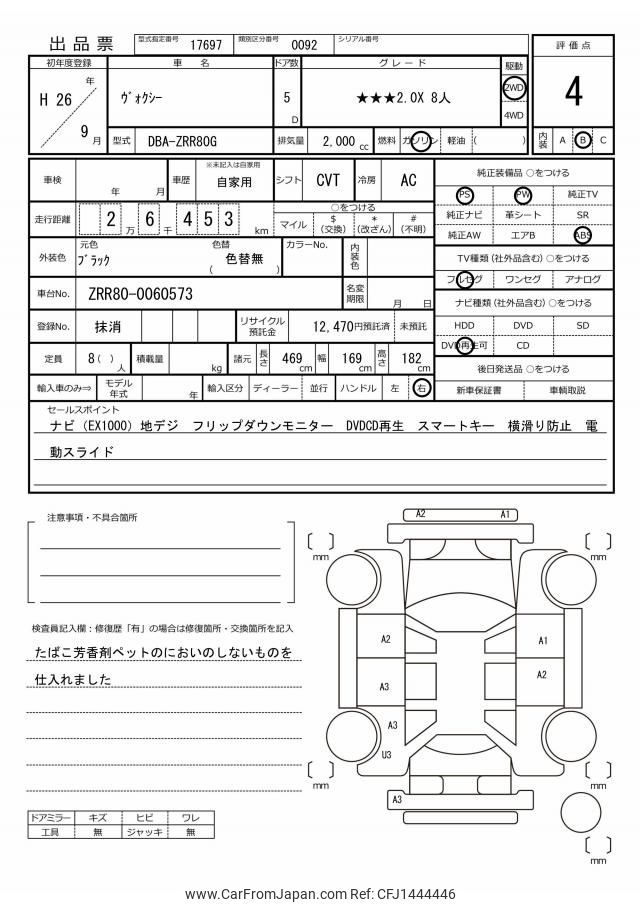 出品票
型式指定番号 17697 類別区分番号 0092 シリアル番号
評価点
4
内装 A B C
初年度登録 車名 ドア数 グレード 駆動
H 26 年 9 月
ヴォクシー
5 D
★★★2.0X 8人
2WD
4WD
型式 DBA-ZRR80G 排気量 2,000 cc 燃料 ガソリン 軽油 ( )
車検 年 月 車歴 ※未記入は自家用 自家用 シフト CVT 冷房 AC
走行距離 2 万 6 千 4 5 3 km
○をつける
マイル $ (交換) * (改ざん) # (不明)
外装色 元色 ブラック 色替 ( 色替無 ) カラーNo. 内装色
車台No. ZRR80-0060573 名変期限 月 日
登録No. 抹消 リサイクル預託金 12,470円預託済 未預託
定員 8 ( ) 人 積載量 kg 諸元 長さ 469 cm 幅 169 cm 高さ 182 cm
輸入車のみ⇒ モデル年式 年 輸入区分 ディーラー 並行 ハンドル 左 右
純正装備品 ○をつける
PS PW 純正TV
純正ナビ 革シート SR
純正AW エアB ABS
TV種類 (社外品含む) ○をつける
フルセグ ワンセグ アナログ
ナビ種類 (社外品含む) ○をつける
HDD DVD SD
DVD再生可 CD
後日発送品 ○をつける
新車保証書 車輌取説
セールスポイント
ナビ（EX1000）地デジ フリップダウンモニター DVDCD再生 スマートキー 横滑り防止 電
動スライド
注意事項・不具合箇所
検査員記入欄：修復歴「有」の場合は修復箇所・交換箇所を記入
たばこ芳香剤ペットのにおいのしないものを
仕入れました
ドアミラー キズ ヒビ ワレ
工具 無 ジャッキ 無
A2 A1
mm mm
A2 A1
A2
A3
A3
U3
mm mm
A3
mm
www.CarFromJapan.com Ref: CFJ1444446